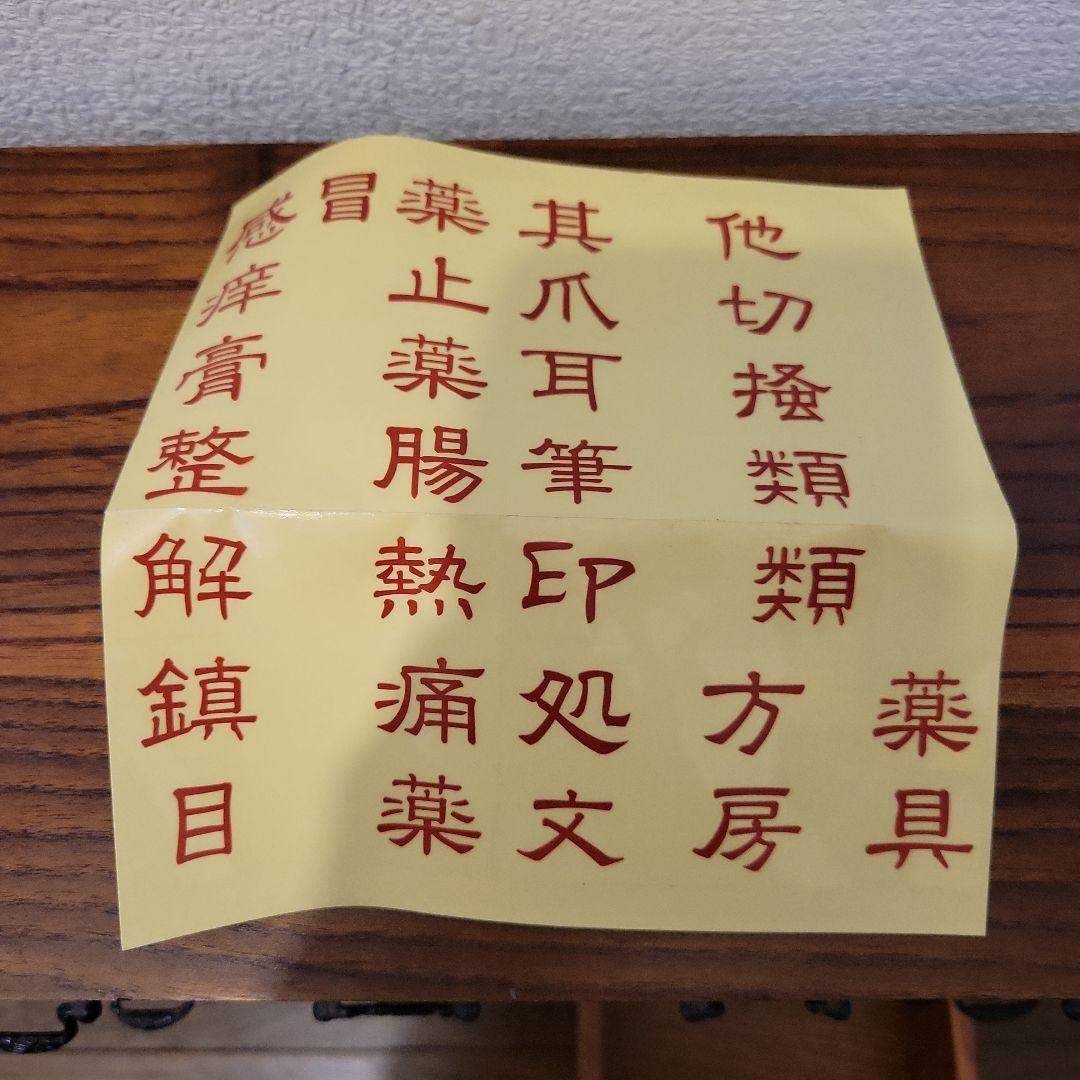 感冒薬
痒止
膏薬
整腸
解熱
鎮痛
目薬
其他
爪切
耳掻
筆類
印類
処方薬
文房具